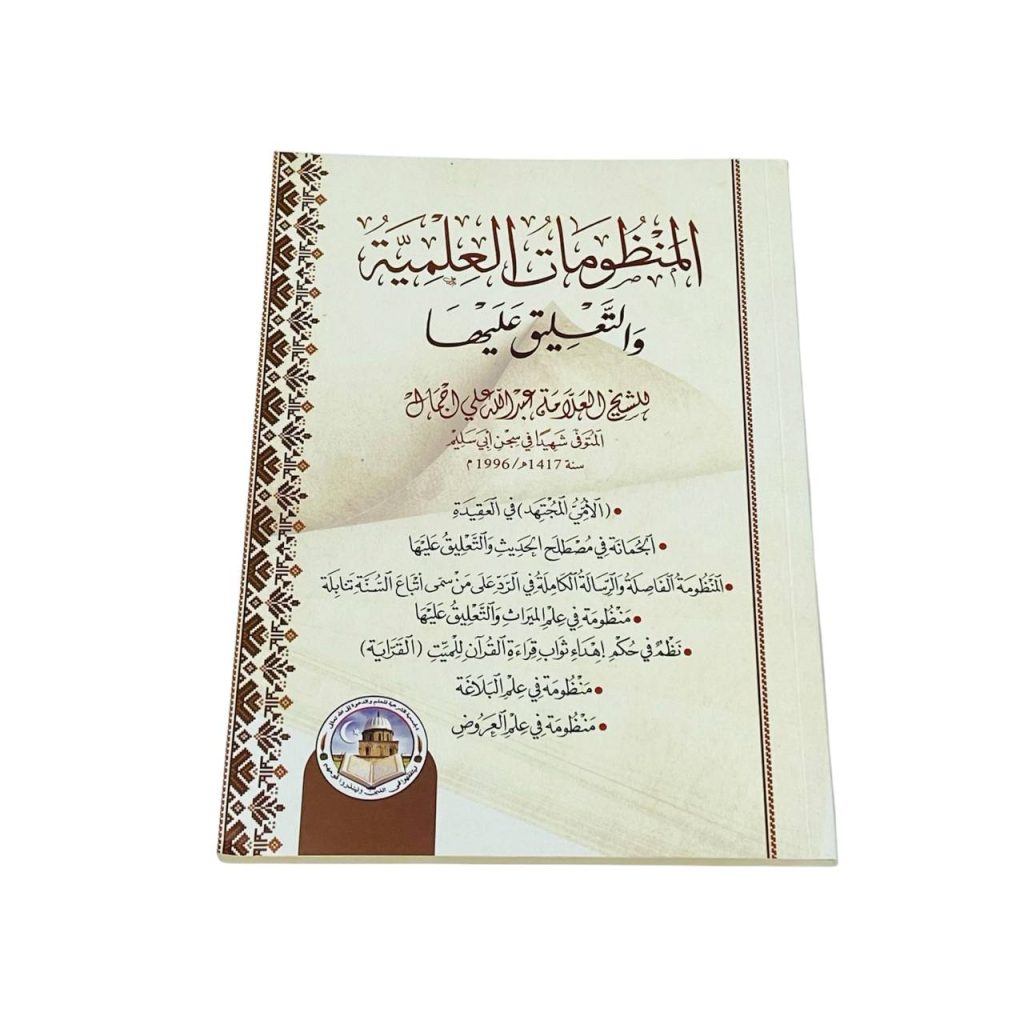 المَنْظُومَاتُ العِلْمِيَّةُ
وَالتَّعْلِيق عَلَيْهَا
للشيخ العَلَّامَة عبد الله علي اجمال
المُتَوَفَّى شَهِيدًا في سِجْنِ أَبِي سَلِيم
سنة 1417هـ/1996م
• (الأُمِّيُّ المُجْتَهِد) في العَقِيدَةِ
• الجُمَانَة في مُصْطَلَحِ الحَدِيثِ وَالتَّعْلِيقُ عَلَيْهَا
• المَنْظُومَةُ الفَاصِلَة وَالرِّسَالَةُ الكَامِلَةُ في الرَّدِّ عَلَى مَنْ سَمَّى اتْبَاعَ السُّنَّةِ تَنَابِلَة
• مَنْظُومَة في عِلْمِ المِيرَاثِ وَالتَّعْلِيقُ عَلَيْهَا
• نَظْمٌ في حُكْمِ إهْدَاءِ ثَوَابِ قِرَاءَةِ القُرْآنِ لِلْمَيِّتِ (القَرَايَة)
• مَنْظُومَة في عِلْمِ البَلَاغَة
• مَنْظُومَة في عِلْمِ العَرُوضِ
ليتفقهوا في الدين ولينذروا قومهم